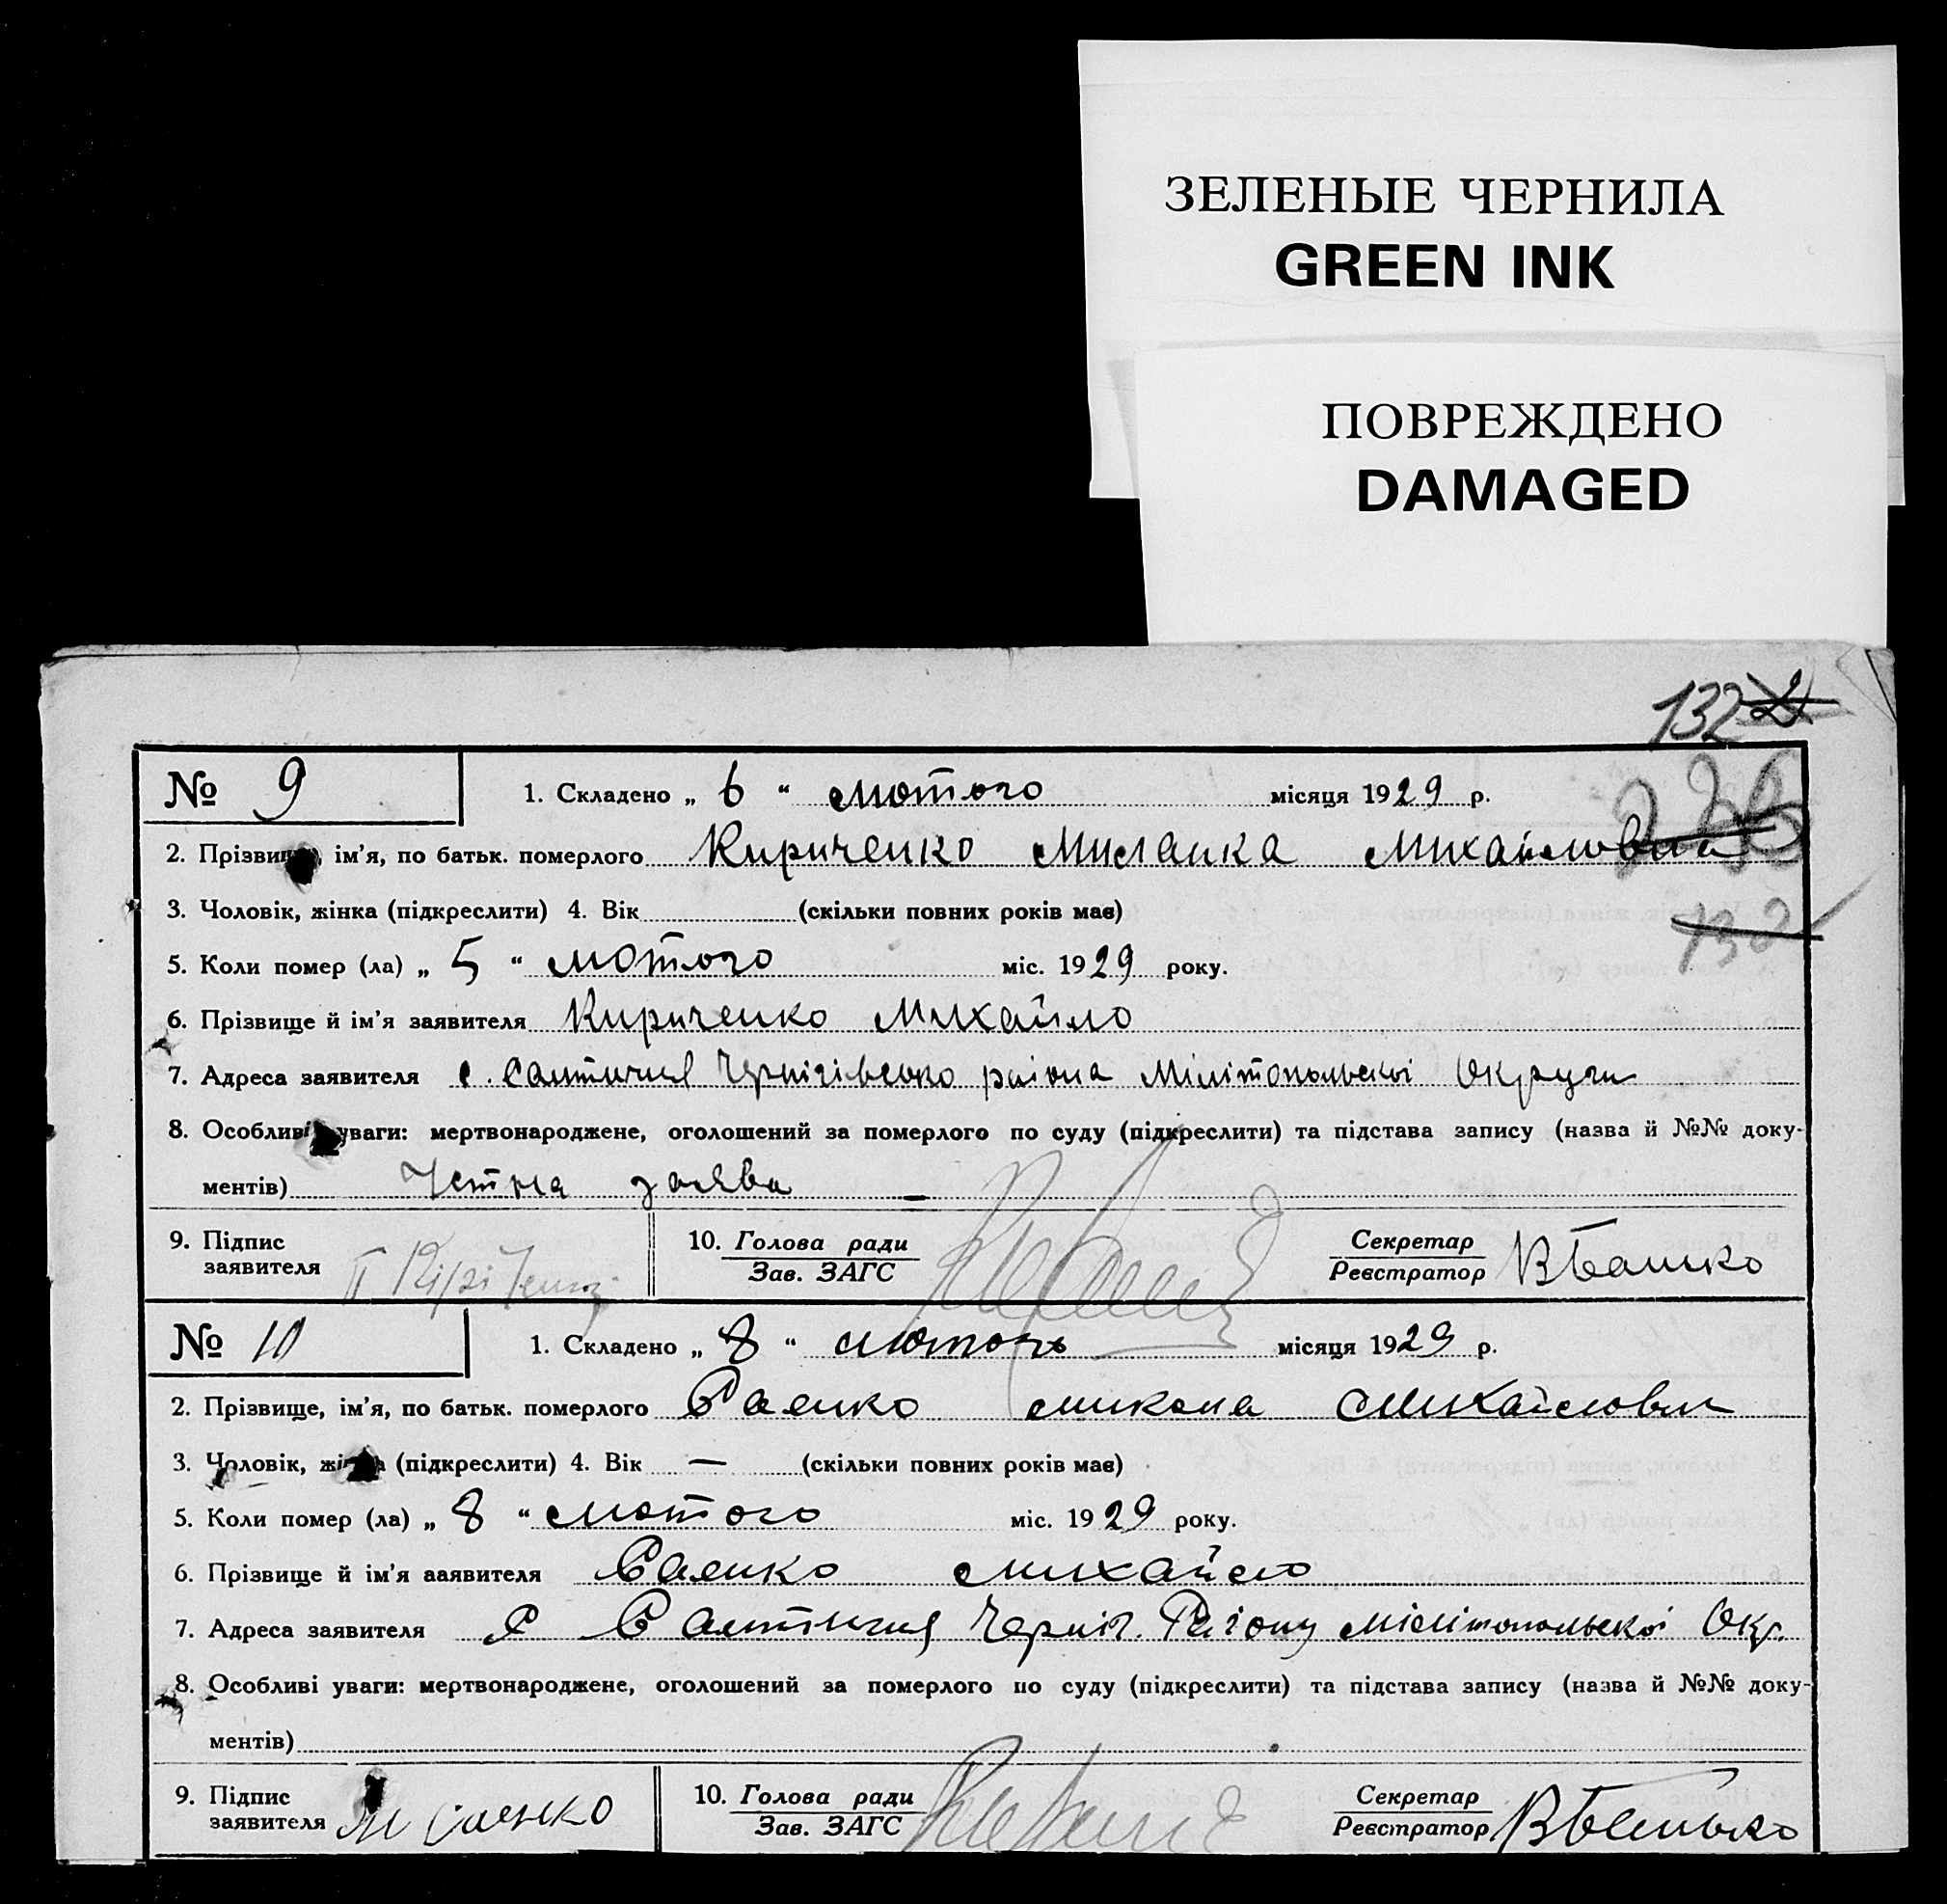 ЗЕЛЕНЫЕ ЧЕРНИЛА
GREEN INK
ПОВРЕЖДЕНО
DAMAGED
132
№ 9 1. Складено „ 6 “ лютого місяця 1929 р.
2. Прізвище, ім’я, по батьк. померлого Кириченко Миланка Михайловна
3. Чоловік, жінка (підкреслити) 4. Вік (скільки повних років має)
132
5. Коли помер (ла) „ 5 “ лютого міс. 1929 року.
6. Прізвище й ім’я заявителя Кириченко Михайло
7. Адреса заявителя с. Салтичия Чернігівсько району Мілітопольскої Округи
8. Особливі уваги: мертвонароджене, оголошений за померлого по суду (підкреслити) та підстава запису (назва й №№ доку-
ментів) Устна заява
9. Підпис заявителя 10. Голова ради Зав. ЗАГС Секретар Реєстратор
№ 10 1. Складено „ 8 “ лютого місяця 1929 р.
2. Прізвище, ім’я, по батьк. померлого Саенко Микола Михайлович
3. Чоловік, жінка (підкреслити) 4. Вік — (скільки повних років має)
5. Коли помер (ла) „ 8 “ лютого міс. 1929 року.
6. Прізвище й ім’я заявителя Саенко Михайло
7. Адреса заявителя С Салтичия Черніг. Району Мілітопольскої Окр.
8. Особливі уваги: мертвонароджене, оголошений за померлого по суду (підкреслити) та підстава запису (назва й №№ доку-
ментів)
9. Підпис заявителя М Саенко 10. Голова ради Зав. ЗАГС Секретар Реєстратор